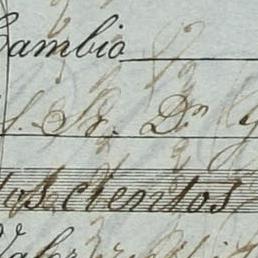 Cambio
S. Sr. Dn
dos cientos
Valor